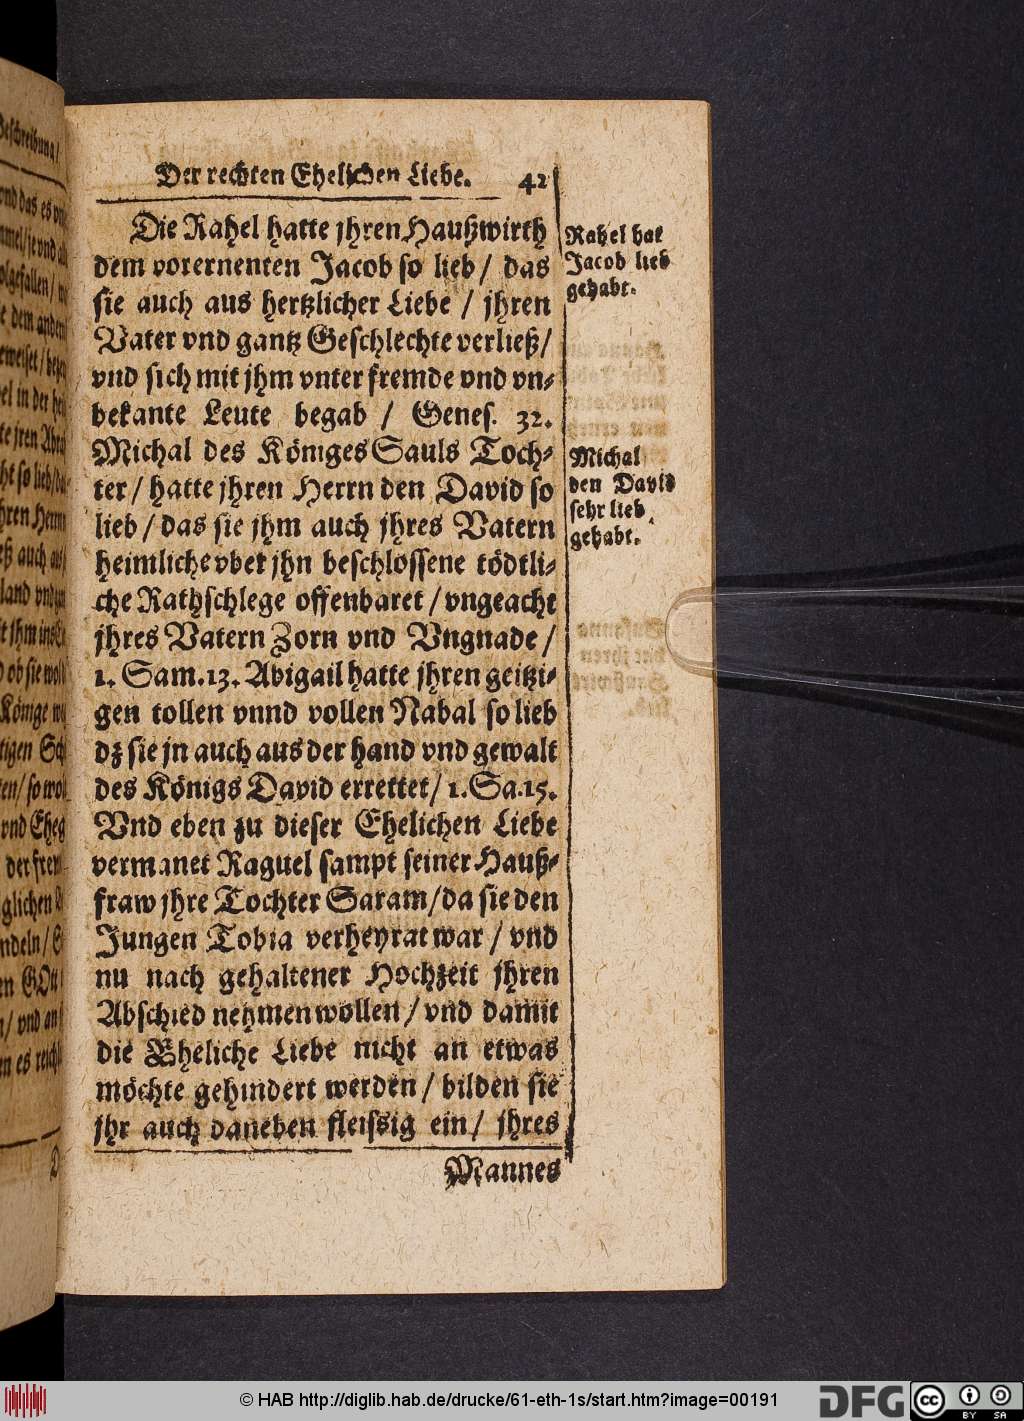 Der rechten Ehelichen Liebe. 42
Die Rahel hatte jhren Haußwirth
dem vorernenten Jacob so lieb / das
sie auch aus hertzlicher Liebe / jhren
Vater vnd gantz Geschlechte verließ /
vnd sich mit jhm vnter fremde vnd vn-
bekante Leute begab / Genes. 32.
Michal des Königes Sauls Toch-
ter / hatte jhren Herrn den David so
lieb / das sie jhm auch jhres Vatern
heimliche vber jhn beschlossene tödtli-
che Rathschlege offenbaret / vngeacht
jhres Vatern Zorn vnd Vngnade /
1. Sam. 13. Abigail hatte jhren geitzi-
gen tollen vnnd vollen Nabal so lieb
dz sie jn auch aus der hand vnd gewalt
des Königs David errettet / 1. Sa. 15.
Vnd eben zu dieser Ehelichen Liebe
vermanet Raguel sampt seiner Hauß-
fraw jhre Tochter Saram / da sie den
Jungen Tobia verheyrat war / vnd
nu nach gehaltener Hochzeit jhren
Abschied nehmen wollen / vnd damit
die Eheliche Liebe nicht an etwas
möchte gehindert werden / bilden sie
jhr auch daneben fleissig ein / jhres
Mannes
Rahel hat
Jacob lieb
gehabt.
Michal
den David
sehr lieb
gehabt.
© HAB http://diglib.hab.de/drucke/61-eth-1s/start.htm?image=00191
DFG
cc
BY SA